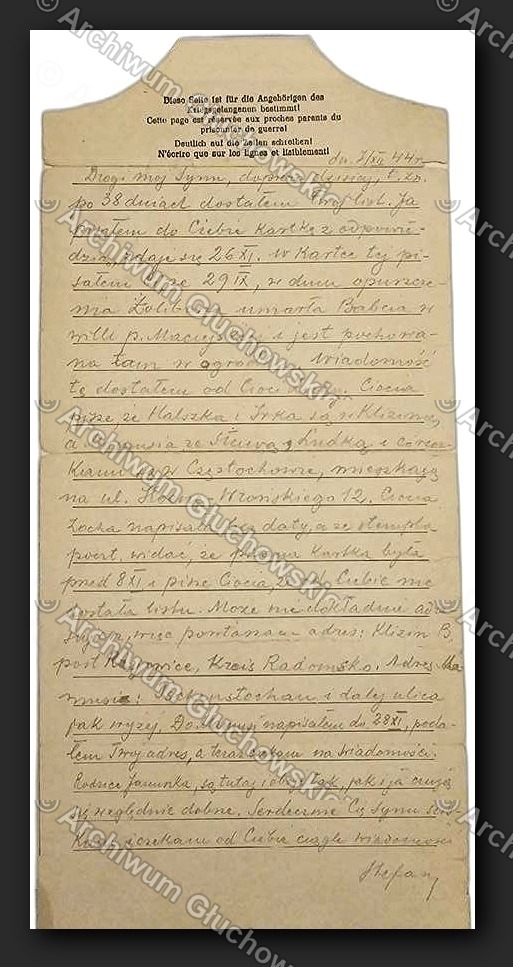 Diese Seite ist für die Angehörigen des
Kriegsgefangenen bestimmt!
Cette page est réservée aux proches parents du
prisonnier de guerre!
Deutlich auf die Zeilen schreiben!
N'écrire que sur les lignes et lisiblement!
dn. 2/XII 44 r.
Drogi mój Synu, dopiero dzisiaj, t. zn.
po 38 dniach dostałem Twój list. Ja
pisałem do Ciebie kartkę z odpowie-
dzią, zdaje się 26 XI. W kartce tej pi-
sałem że 29 IX, w dniu opuszcze-
nia Żoliborza umarła Babcia w
willi p. Maciejskiej i jest pochowa-
na tam w ogrodzie. Wiadomość
tę dostałem od Cioci. Ciocia
pisze że Halszka i Irka są w Klizinie,
a ze Sławą, Ludką i córecz-
kami są w Częstochowie, mieszkają
na ul. Hoene-Wrońskiego 12. Ciocia
Zocha napisała bez daty, a ze stempla
poczt. widać, że pisana kartka była
przed 8 XI i pisze Ciocia, że od Ciebie nie
dostała listu. Może nie dokładnie adre-
sujesz, więc powtarzam adres: Klizin B,
post Kreis Radomsko. Adres Ma-
musi: Tschenstochau i dalej ulica
jak wyżej. napisałem do 28 XI, poda-
łem Twój adres, a teraz czekam na wiadomości.
Rodzice Janinka, są tutaj i obije tak, jak i ja czują
się względnie dobrze. Serdecznie Cię Synu
i czekam od Ciebie ciągle wiadomości
Stefan
© Archiwum Głuchowskich